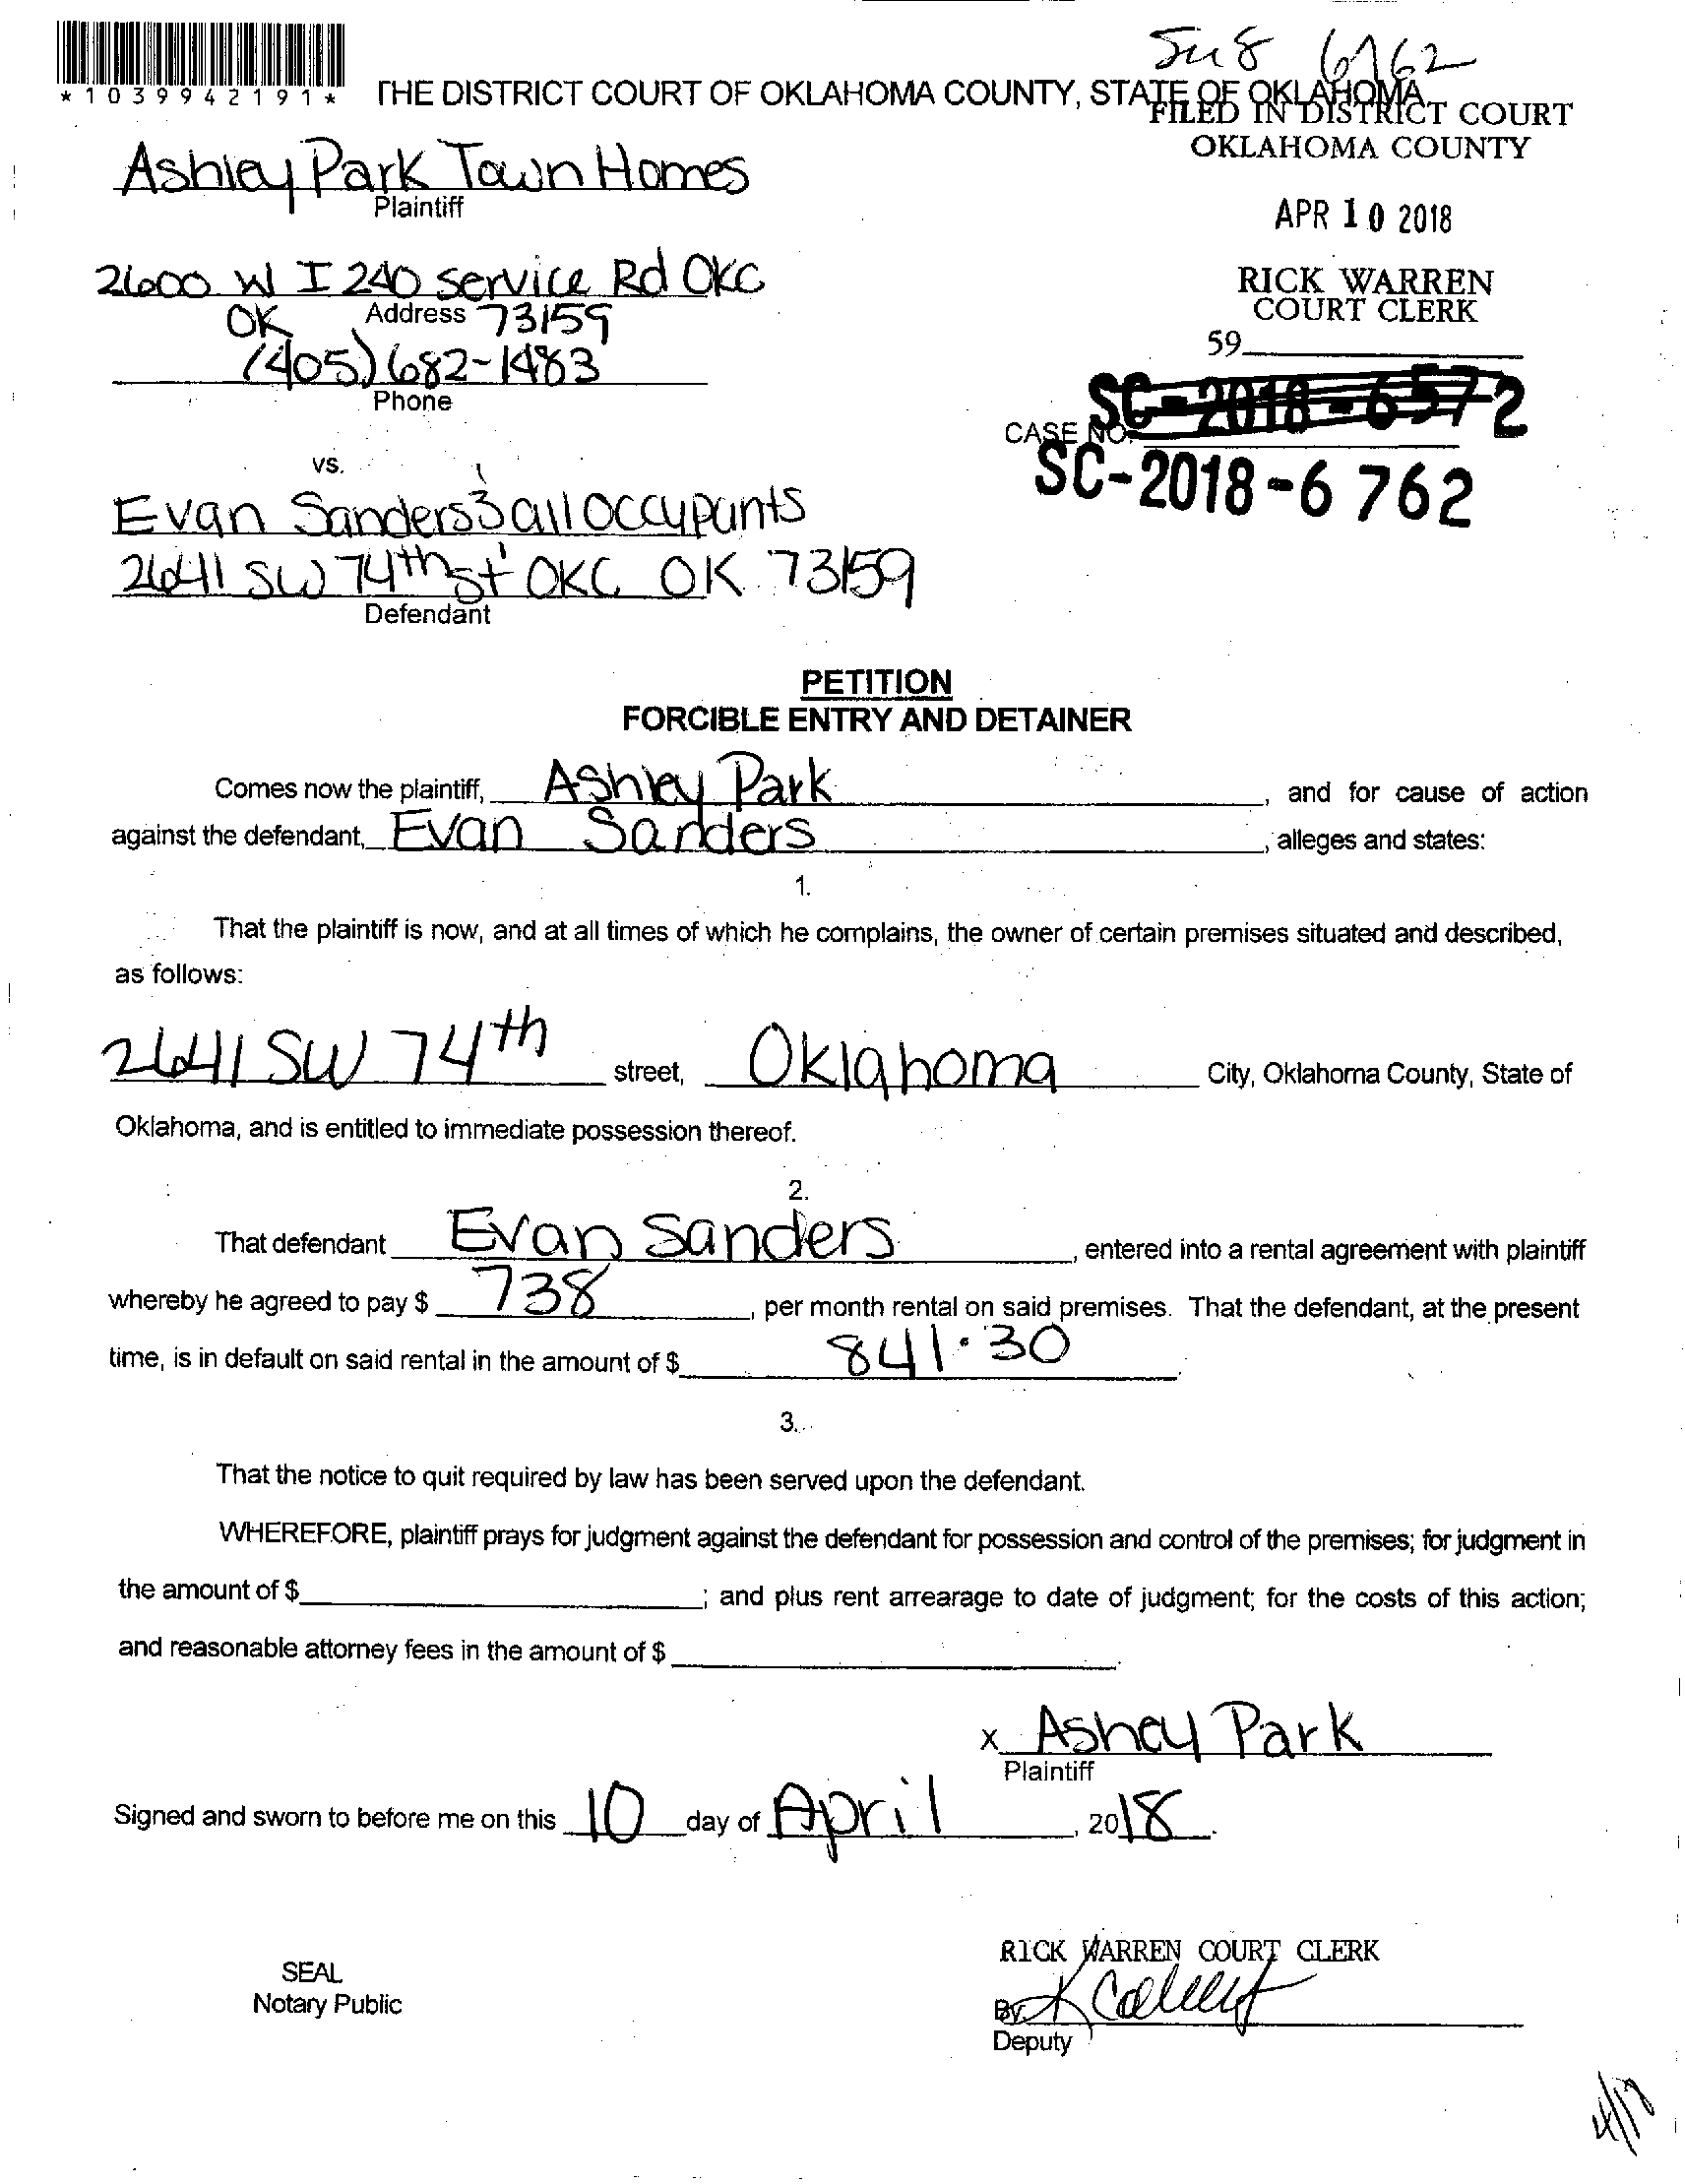 6762
*1039942191*
THE DISTRICT COURT OF OKLAHOMA COUNTY, STATE OF OKLAHOMA
FILED IN DISTRICT COURT
OKLAHOMA COUNTY
Ashley Park Town Homes
Plaintiff
APR 10 2018
2600 W I 240 service Rd OKC
RICK WARREN
COURT CLERK
OK Address 73159
59
(405) 682-1483
Phone
SC-2018-6572
CASE NO.
SC-2018-6762
vs.
Evan Sanders & all occupants
2641 SW 74th st OKC OK 73159
Defendant
PETITION
FORCIBLE ENTRY AND DETAINER
Comes now the plaintiff, Ashley Park, and for cause of action
against the defendant, Evan Sanders, alleges and states:
1.
That the plaintiff is now, and at all times of which he complains, the owner of certain premises situated and described,
as follows:
2641 SW 74th street, Oklahoma City, Oklahoma County, State of
Oklahoma, and is entitled to immediate possession thereof.
2.
That defendant Evan Sanders, entered into a rental agreement with plaintiff
whereby he agreed to pay $ 738, per month rental on said premises. That the defendant, at the present
time, is in default on said rental in the amount of $ 841.30.
3.
That the notice to quit required by law has been served upon the defendant.
WHEREFORE, plaintiff prays for judgment against the defendant for possession and control of the premises; for judgment in
the amount of $; and plus rent arrearage to date of judgment; for the costs of this action;
and reasonable attorney fees in the amount of $.
x Ashey Park
Plaintiff
Signed and sworn to before me on this 10 day of April, 2018.
RICK WARREN COURT CLERK
SEAL
Notary Public
By
Deputy